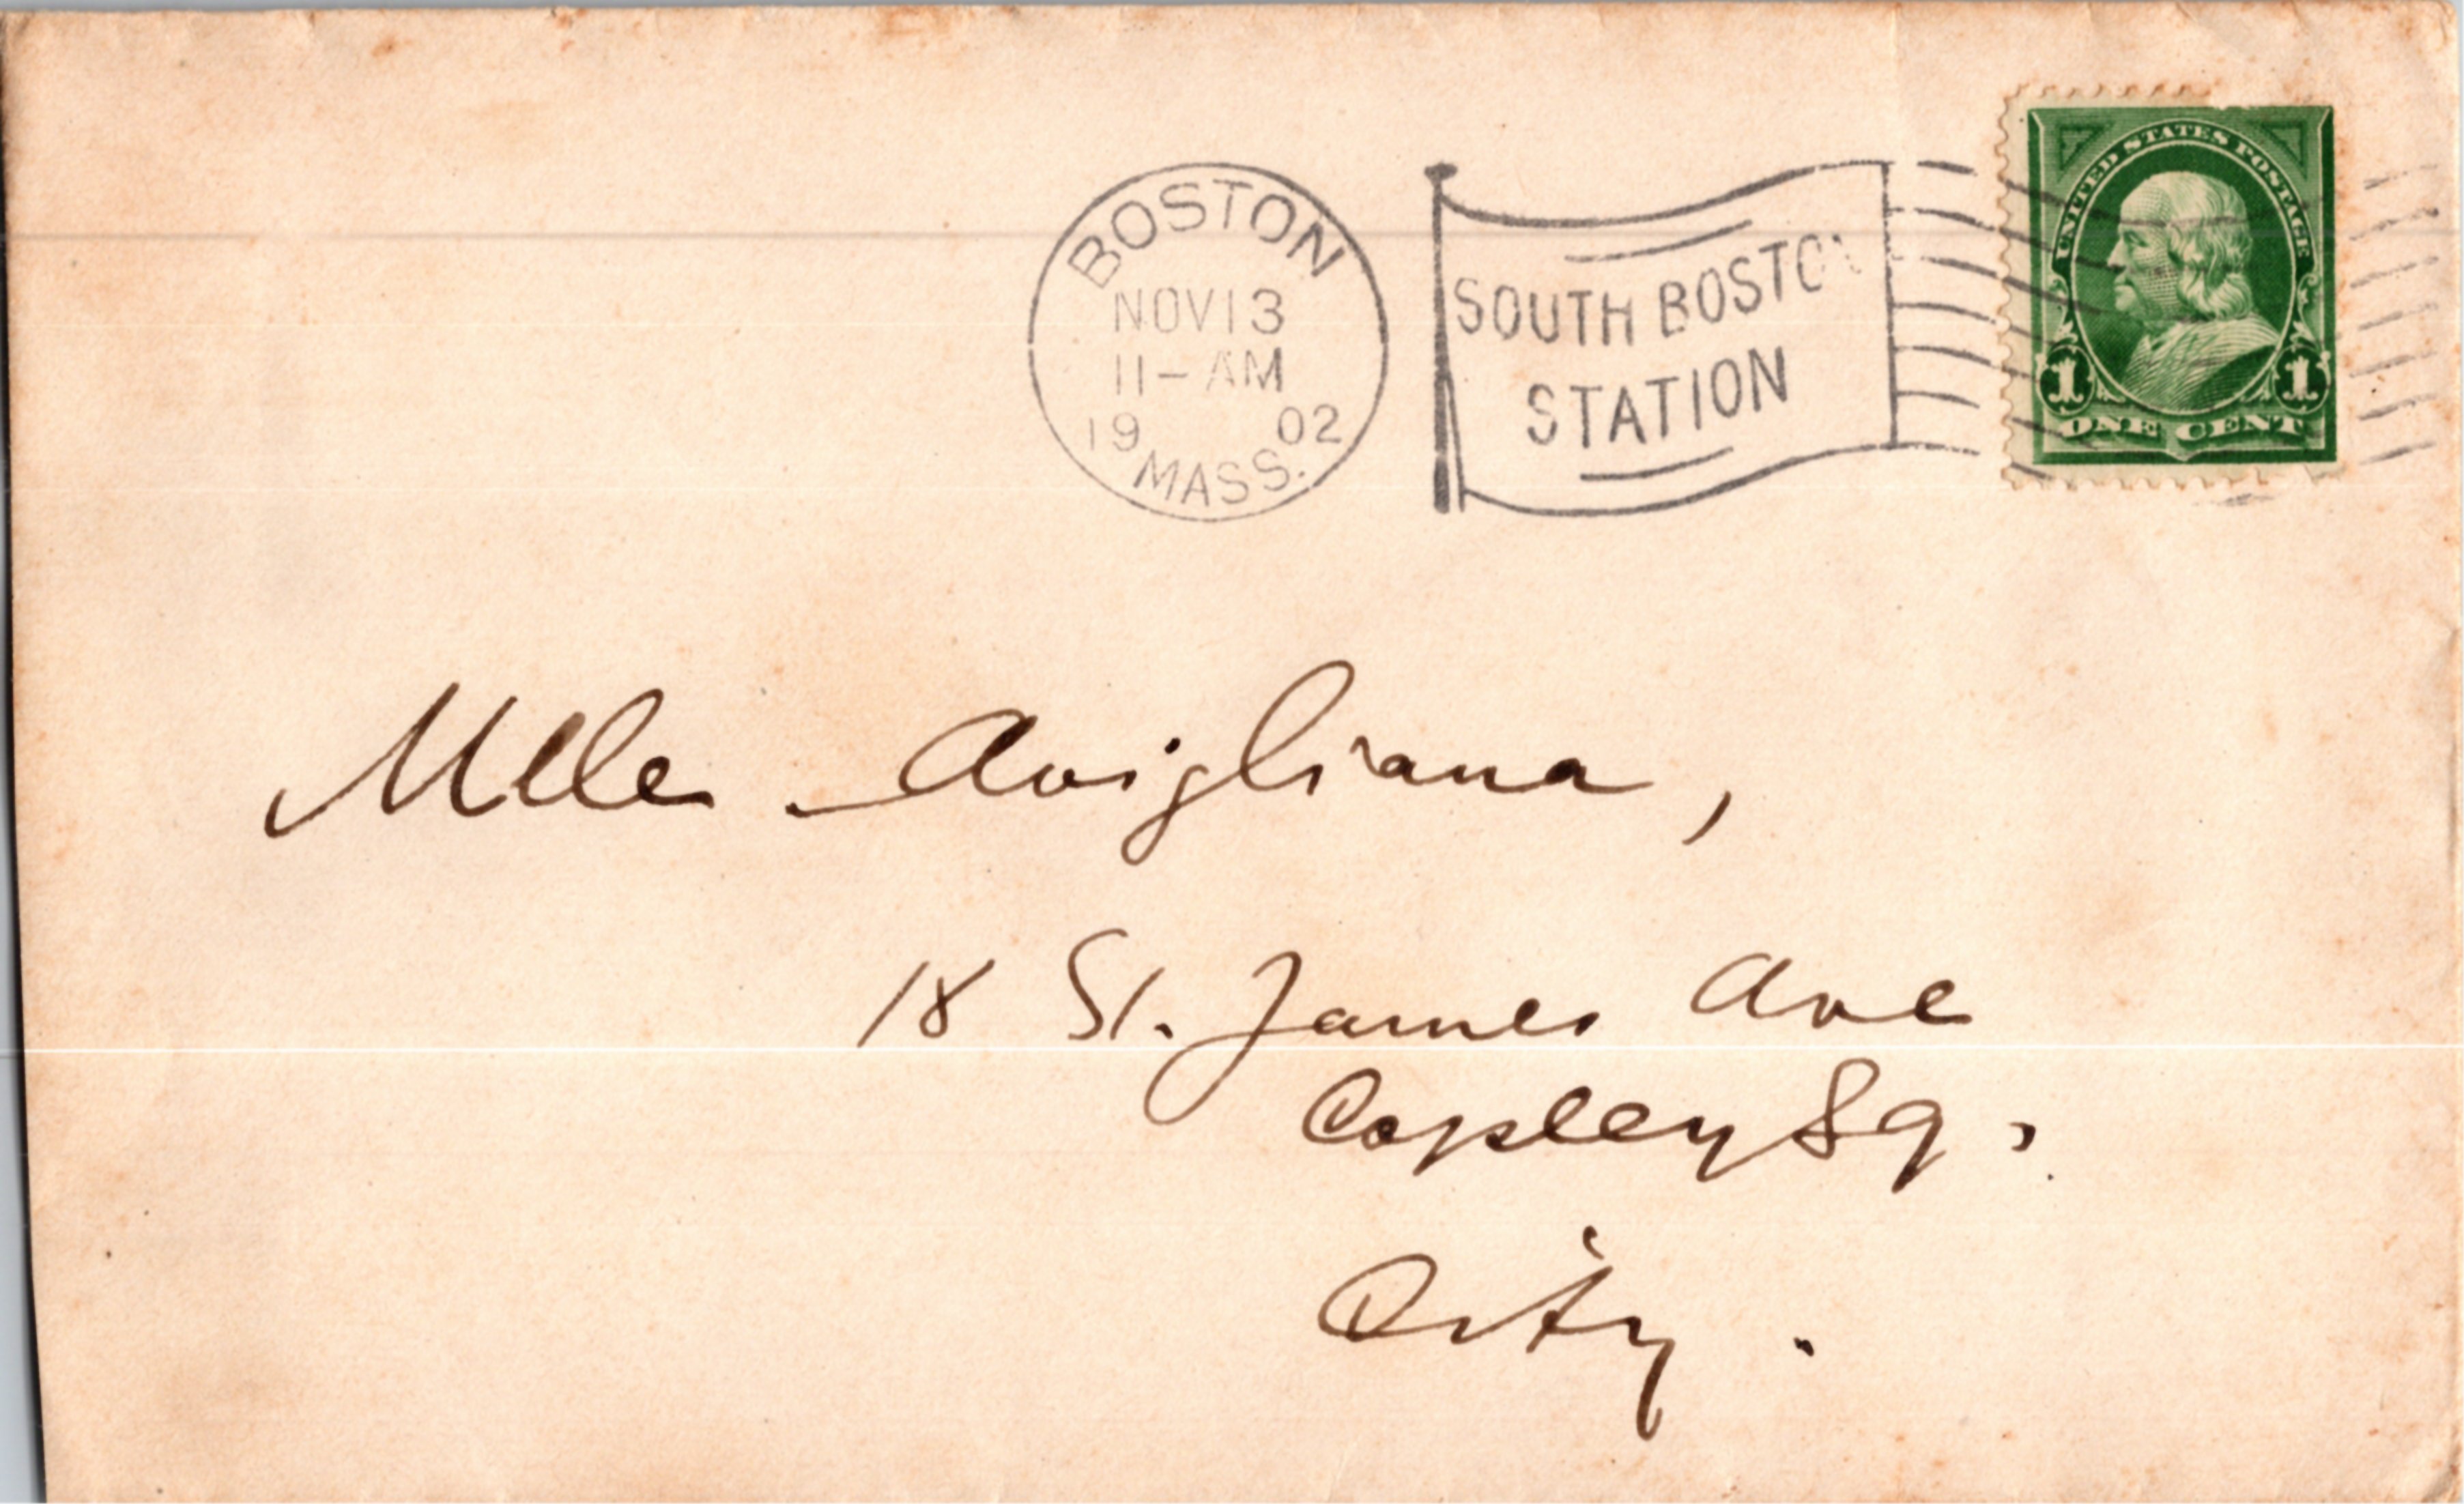 BOSTON
NOV 13
11-AM
19 02
MASS.
SOUTH BOSTON
STATION
UNITED STATES POSTAGE
1 1
ONE CENT
Mlle Avigliana,
18 St. James Ave
Copley Sq.
City.